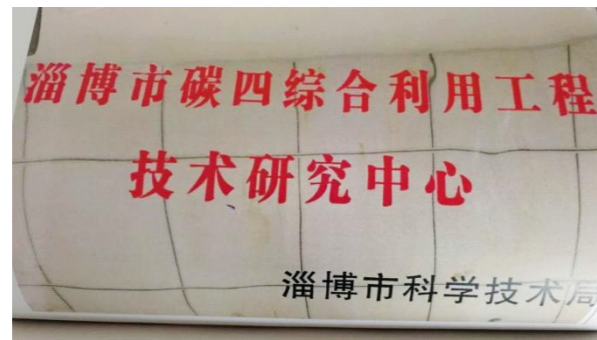 淄博市碳四综合利用工程
技术研究中心
淄博市科学技术局